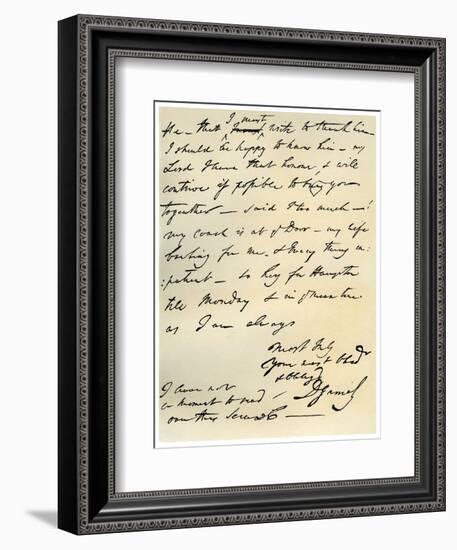 He - that I must write to thank him -
I should be happy to know him - my
Lord I have that honour, & will
contrive if possible to bring you
together - said I too much - !
my coach is at yͤ Door - my Wife
bawling for me. & Every thing im:
:patient - so hey for Hampton
till Monday & in yͤ mean time
as I am always
most truly
Your most obedͭ
& oblig'd
D Garrick
I have not
a moment to read
over this Scrawl